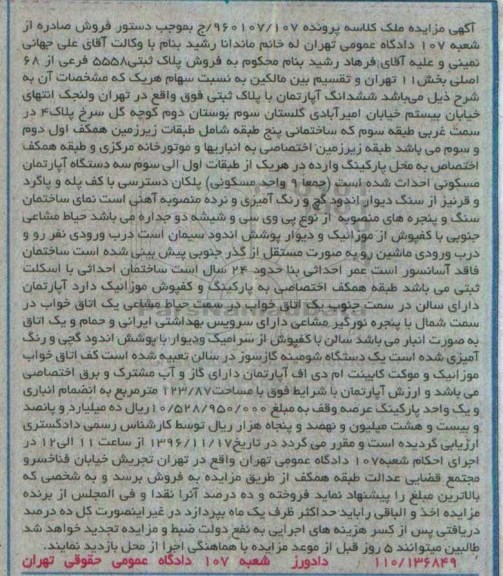 آگهی مزایده ملک کلاسه پرونده ۹۶۰۱۰۷/۱۰۷/ج بموجب دستور فروش صادره از
شعبه ۱۰۷ دادگاه عمومی تهران له خانم ماندانا رشید بنام با وکالت آقای علی جهانی
نمینی و علیه آقای فرهاد رشید بنام محکوم به فروش پلاک ثبتی۵۵۵۸ فرعی از ۶۸
اصلی بخش۱۱ تهران و تقسیم بین مالکین به نسبت سهام هریک که مشخصات آن به
شرح ذیل می‌باشد ششدانگ آپارتمان با پلاک ثبتی فوق واقع در تهران ولنجک انتهای
خیابان بیستم خیابان امیرآبادی گلستان سوم بوستان دوم کوچه گل سرخ پلاک۴ در
سمت غربی طبقه سوم که ساختمانی پنج طبقه شامل طبقات زیرزمین همکف اول دوم
و سوم می باشد طبقه زیرزمین اختصاصی به انباریها و موتورخانه مرکزی و طبقه همکف
اختصاص به محل پارکینگ وارده در هریک از طبقات اول الی سوم سه دستگاه آپارتمان
مسکونی احداث شده است (جمعا ۹ واحد مسکونی) پلکان دسترسی با کف پله و پاگرد
و قرنیز از سنگ دیوار اندود گچ و رنگ آمیزی و نرده منصوبه آهنی است نمای ساختمان
سنگ و پنجره های منصوبه از نوع پی وی سی و شیشه دو جداره می باشد حیاط مشاعی
جنوبی با کفپوش از موزائیک و دیوار پوشش اندود سیمان است درب ورودی نفر رو و
درب ورودی ماشین رو به صورت مستقل از گذر جنوبی پیش بینی شده است ساختمان
فاقد آسانسور است عمر احداثی بنا حدود ۲۴ سال است ساختمان احداثی با اسکلت
ثبتی می باشد طبقه همکف اختصاصی به پارکینگ و کفپوش موزائیک دارد آپارتمان
دارای سالن در سمت جنوب یک اتاق خواب در سمت حیاط مشاعی یک اتاق خواب در
سمت شمال با پنجره نورگیر مشاعی دارای سرویس بهداشتی ایرانی و حمام و یک اتاق
به صورت انبار می باشد سالن با کفپوش از سرامیک ودیوار با پوشش اندود گچی و رنگ
آمیزی شده است یک دستگاه شومینه گازسوز در سالن تعبیه شده است کف اتاق خواب
موزائیک و موکت کابینت ام دی اف آپارتمان دارای گاز و آب مشترک و برق اختصاصی
می باشد و ارزش آپارتمان با شرایط فوق با مساحت۱۲۳/۸۷ مترمربع به انضمام انباری
و یک واحد پارکینگ عرصه وقف به مبلغ ۱۰/۵۲۸/۹۵۰/۰۰۰ریال ده میلیارد و پانصد
و بیست و هشت میلیون و نهصد و پنجاه هزار ریال توسط کارشناس رسمی دادگستری
ارزیابی گردیده است و مقرر می گردد در تاریخ۱۳۹۶/۱۱/۱۷ از ساعت ۱۱ الی۱۲ در
اجرای احکام شعبه۱۰۷ دادگاه عمومی تهران واقع در تهران تجریش خیابان فناخسرو
مجتمع قضایی عدالت طبقه همکف از طریق مزایده به فروش برسد و به شخصی که
بالاترین مبلغ را پیشنهاد نماید فروخته و ده درصد آنرا نقدا و فی المجلس از برنده
مزایده اخذ و الباقی راباید حداکثر ظرف یک ماه بپردازد در غیراینصورت کل ده درصد
دریافتی پس از کسر هزینه های اجرایی به نفع دولت ضبط و مزایده تجدید خواهد شد
طالبین میتوانند ۵ روز قبل از موعد مزایده با هماهنگی اجرا از محل بازدید نمایند.
۱۱۰/۱۳۶۸۴۹ دادورز شعبه ۱۰۷ دادگاه عمومی حقوقی تهران